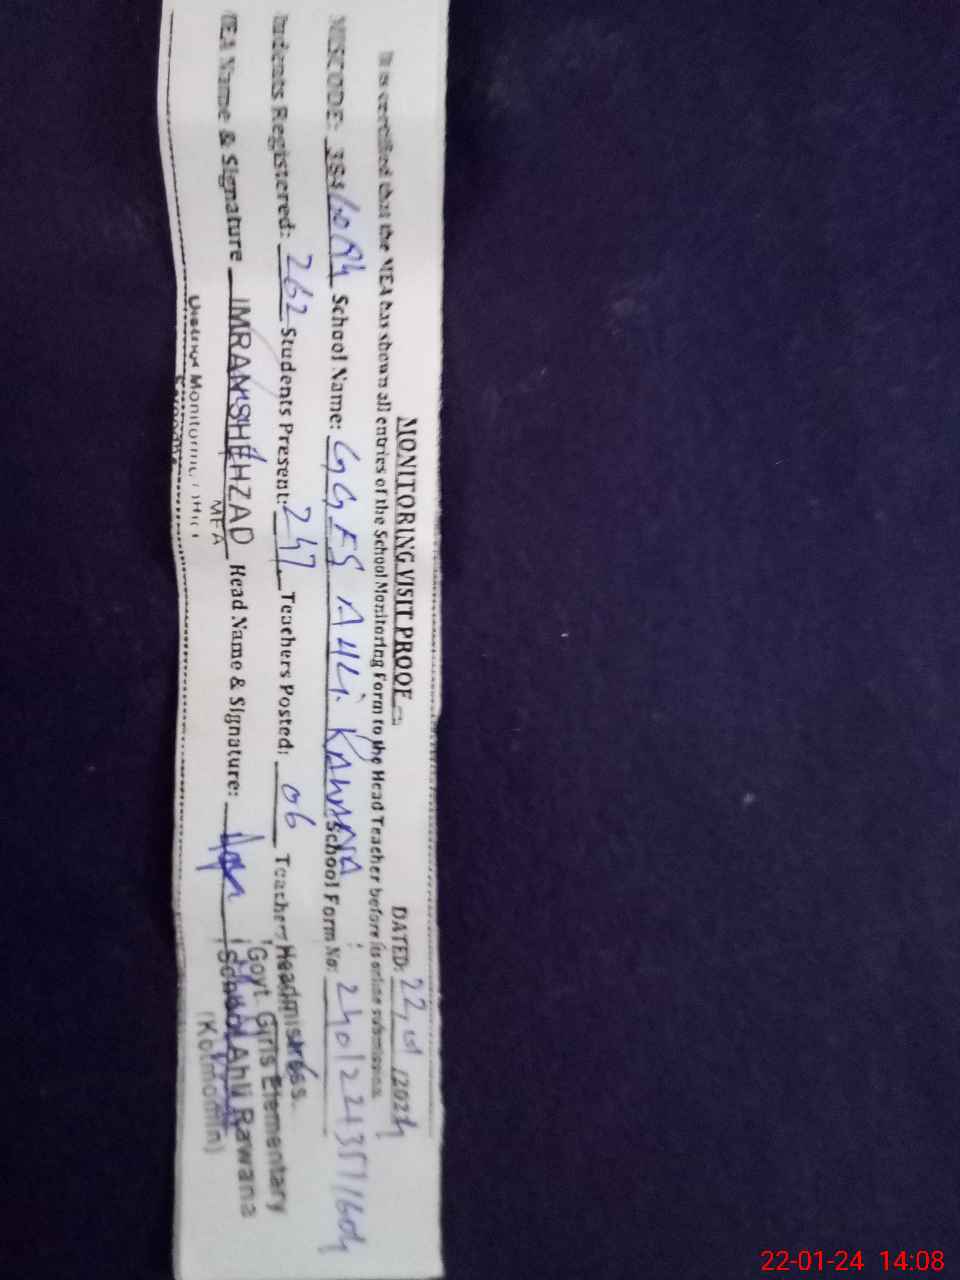 MONITORING VISIT PROOF
DATED: 22, 01 /2024
It is certified that the MEA has shown all entries of the School Monitoring Form to the Head Teacher before its online submission.
School Name: GGES AHLI RAWANA School Form No:
Students Registered: 262 Students Present: 247 Teachers Posted: 06
MEA Name & Signature IMRAN SHEHZAD Head Name & Signature:
MEA
District Monitoring Office
Headmistress.
Govt. Girls Elementary
School Ahli Rawana
(Kotmomin)
22-01-24 14:08